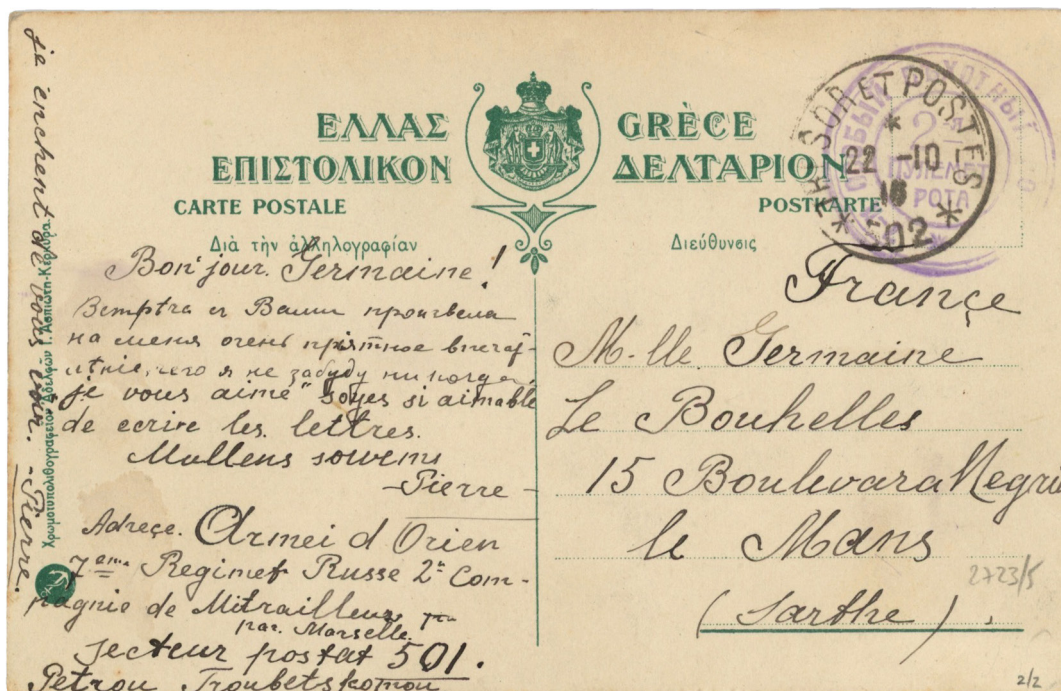 ΕΛΛΑΣ GRÈCE
ΕΠΙΣΤΟΛΙΚΟΝ ΔΕΛΤΑΡΙΟΝ
CARTE POSTALE POSTKARTE
Διὰ τὴν ἀλληλογραφίαν Διεύθυνσις
TRESOR ET POSTES
* 22 -10 16 *
502
2я
ПУЛЕМЕТ
РОТА
Bon'jour. Germaine!
Встрѣча съ Вами произвела
на меня очень пріятное впечат-
лѣніе, чего я не забуду никогда.
je vous aime" soyes si aimable
de ecrire les lettres.
Mullens souvens
-Pierre-
Adreçe. Armei d Orien
7 eme Regimet Russe 2e Com-
pagnie de Mitrailleur
par. Marselle.
Secteur postat 501.
Petrou Troubetskomou
je enchent de vous-voir. -Pierre.
Françe
M-lle Germaine
Le Bouhelles
15 Boulvara Negri
le Mans
(Sarthe).
2723/5
2/2
Χρωμοτυπολιθογραφεῖον Ἀδελφῶν Γ. Ἀσπιώτη-Κέρκυρα.